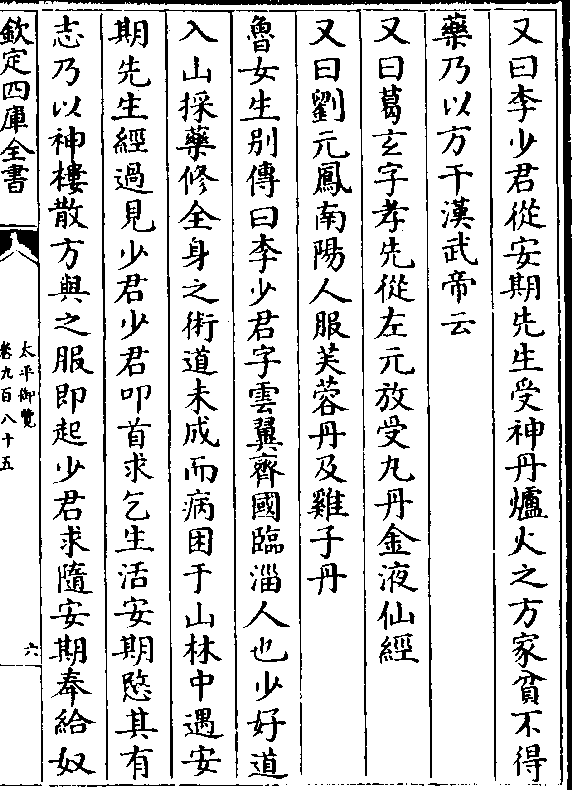 又曰李少君從安期先生受神丹爐火之方家貧不得
藥乃以方干漢武帝云
又曰葛玄字孝先從左元放受九丹金液仙經
又曰劉元鳳南陽人服芙蓉丹及雞子丹
魯女生别傳曰李少君字雲翼齊國臨淄人也少好道
入山採藥修全身之術道未成而病困于山林中遇安
期先生經過見少君少君叩首求乞生活安期愍其有
志乃以神樓散方與之服即起少君求隨安期奉給奴
欽定四庫全書
太平御覽
卷九百八十五
六